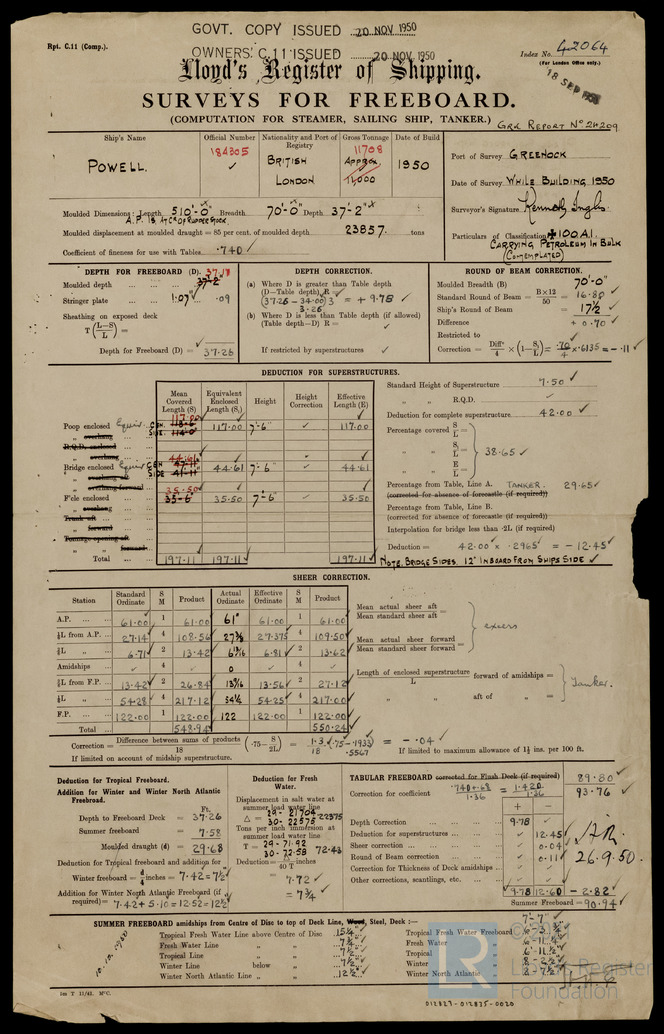 GOVT. COPY ISSUED 20 NOV 1950
Rpt. C.11 (Comp.).
OWNERS' C.11 ISSUED 20 NOV 1950
Index No. 42064
(For London Office only.)
Lloyd's Register of Shipping.
SURVEYS FOR FREEBOARD.
(COMPUTATION FOR STEAMER, SAILING SHIP, TANKER.)
GRK REPORT No 24209
Ship's Name
Official Number
Nationality and Port of Registry
Gross Tonnage
Date of Build
POWELL.
184305
BRITISH
LONDON
11708
APPROX
11,000
1950
Port of Survey GREENOCK
Date of Survey WHILE BUILDING 1950
Surveyor's Signature
Particulars of Classification 100 A.1.
CARRYING PETROLEUM IN BULK
(CONTEMPLATED)
Moulded Dimensions: Length 510'-0" Breadth 70'-0" Depth 37'-2"
A.P. IS AT C OF RUDDER STOCK
Moulded displacement at moulded draught = 85 per cent. of moulded depth 23857 tons
Coefficient of fineness for use with Tables .740
DEPTH FOR FREEBOARD (D). 37.17
Moulded depth 37'-2"
Stringer plate 1.07" .09
Sheathing on exposed deck
T (L-S/L) =
Depth for Freeboard (D) = 37.26
DEPTH CORRECTION.
(a) Where D is greater than Table depth
(D—Table depth) R =
(37.26 - 34.00) 3 = + 9.78
3.26
(b) Where D is less than Table depth (if allowed)
(Table depth—D) R =
If restricted by superstructures
ROUND OF BEAM CORRECTION.
Moulded Breadth (B) 70'-0"
Standard Round of Beam = B×12/50 = 16.80
Ship's Round of Beam = 17½
Difference + 0.70
Restricted to
Correction = Diff/4 × (1-S/L) = .70/4 × .6135 = - .11
DEDUCTION FOR SUPERSTRUCTURES.
Mean Covered Length (S)
Equivalent Enclosed Length (S₁)
Height
Height Correction
Effective Length (E)
Poop enclosed Equiv. 117.00 117.00 7'-6" 117.00
" overhang SIDE 114.0
R.Q.D. enclosed
" overhang
Bridge enclosed Equiv 44.61 44.61 7'-6" 44.61
" overhang aft SIDE 41-11"
" overhang forward
F'cle enclosed 35.50 35-6" 35.50 7'-6" 35.50
" overhang
Trunk aft
" forward
Tonnage opening aft
" " forward
Total 197.11 197.11 197.11
Standard Height of Superstructure 7.50
" " R.Q.D.
Deduction for complete superstructure 42.00
Percentage covered S/L =
" " S₁/L = 38.65
" " E/L =
Percentage from Table, Line A. TANKER. 29.65
(corrected for absence of forecastle (if required))
Percentage from Table, Line B.
(corrected for absence of forecastle (if required))
Interpolation for bridge less than ·2L (if required)
Deduction = 42.00 × .2965 = - 12.45
NOTE. BRIDGE SIDES 12" INBOARD FROM SHIPS SIDE
SHEER CORRECTION.
Station
Standard Ordinate
S M
Product
Actual Ordinate
Effective Ordinate
S M
Product
A.P. 61.00 1 61.00 61" 61.00 1 61.00
⅙L from A.P. 27.14 4 108.56 27⅜ 27.375 4 109.50
⅓L " 6.71 2 13.42 6 13/16 6.81 2 13.62
Amidships 4 0 4
⅓L from F.P. 13.42 2 26.84 13 9/16 13.56 2 27.12
⅙L " 54.28 4 217.12 54¼ 54.25 4 217.00
F.P. 122.00 1 122.00 122 122.00 1 122.00
Total 548.94 550.24
Mean actual sheer aft
Mean standard sheer aft =
Mean actual sheer forward
Mean standard sheer forward =
excess
Length of enclosed superstructure/L forward of amidships =
" " aft of " =
Tanker.
Correction = Difference between sums of products/18 (.75 - S/2L) = 1.3/18 (.75 - .1933) = - .04
.5567
If limited on account of midship superstructure.
If limited to maximum allowance of 1½ ins. per 100 ft.
Deduction for Tropical Freeboard.
Addition for Winter and Winter North Atlantic Freeboard.
Ft.
Depth to Freeboard Deck = 37.26
Summer freeboard = 7.58
Moulded draught (d) = 29.68
Deduction for Tropical freeboard and addition for
Winter freeboard = d/4 inches = 7.42 = 7½
Addition for Winter North Atlantic Freeboard (if required) = 7.42 + 5.10 = 12.52 = 12½
Deduction for Fresh Water.
Displacement in salt water at summer load water line
Δ = 29 - 21704
30 - 22575 22375
Tons per inch immersion at summer load water line
T = 29 - 71.92
30 - 72.58 72.43
Deduction = Δ/40 T inches
= 7.72
= 7¾
TABULAR FREEBOARD corrected for Flush Deck (if required) 89.80
Correction for coefficient .740+.68/1.36 = 1.420/1.36 93.76
+ -
Depth Correction 9.78
Deduction for superstructures 12.45
Sheer correction 0.04
Round of Beam correction 0.11
Correction for Thickness of Deck amidships
Other corrections, scantlings, etc.
9.78 12.60 - 2.82
Summer Freeboard = 90.94
26.9.50.
SUMMER FREEBOARD amidships from Centre of Disc to top of Deck Line, Wood, Steel, Deck :— 7'-7"
Tropical Fresh Water Line above Centre of Disc 15¼
Fresh Water Line " " 7¾
Tropical Line " " 7½
Winter Line below " 7½
Winter North Atlantic Line " " 12½
Tropical Fresh Water Freeboard
Fresh Water "
Tropical "
Winter " 8 - 2½
Winter North Atlantic " 8 - 7½
10.10.1950
Lloyd's Register
Foundation
1m T 11/42. M°C.
012827-012835-0020